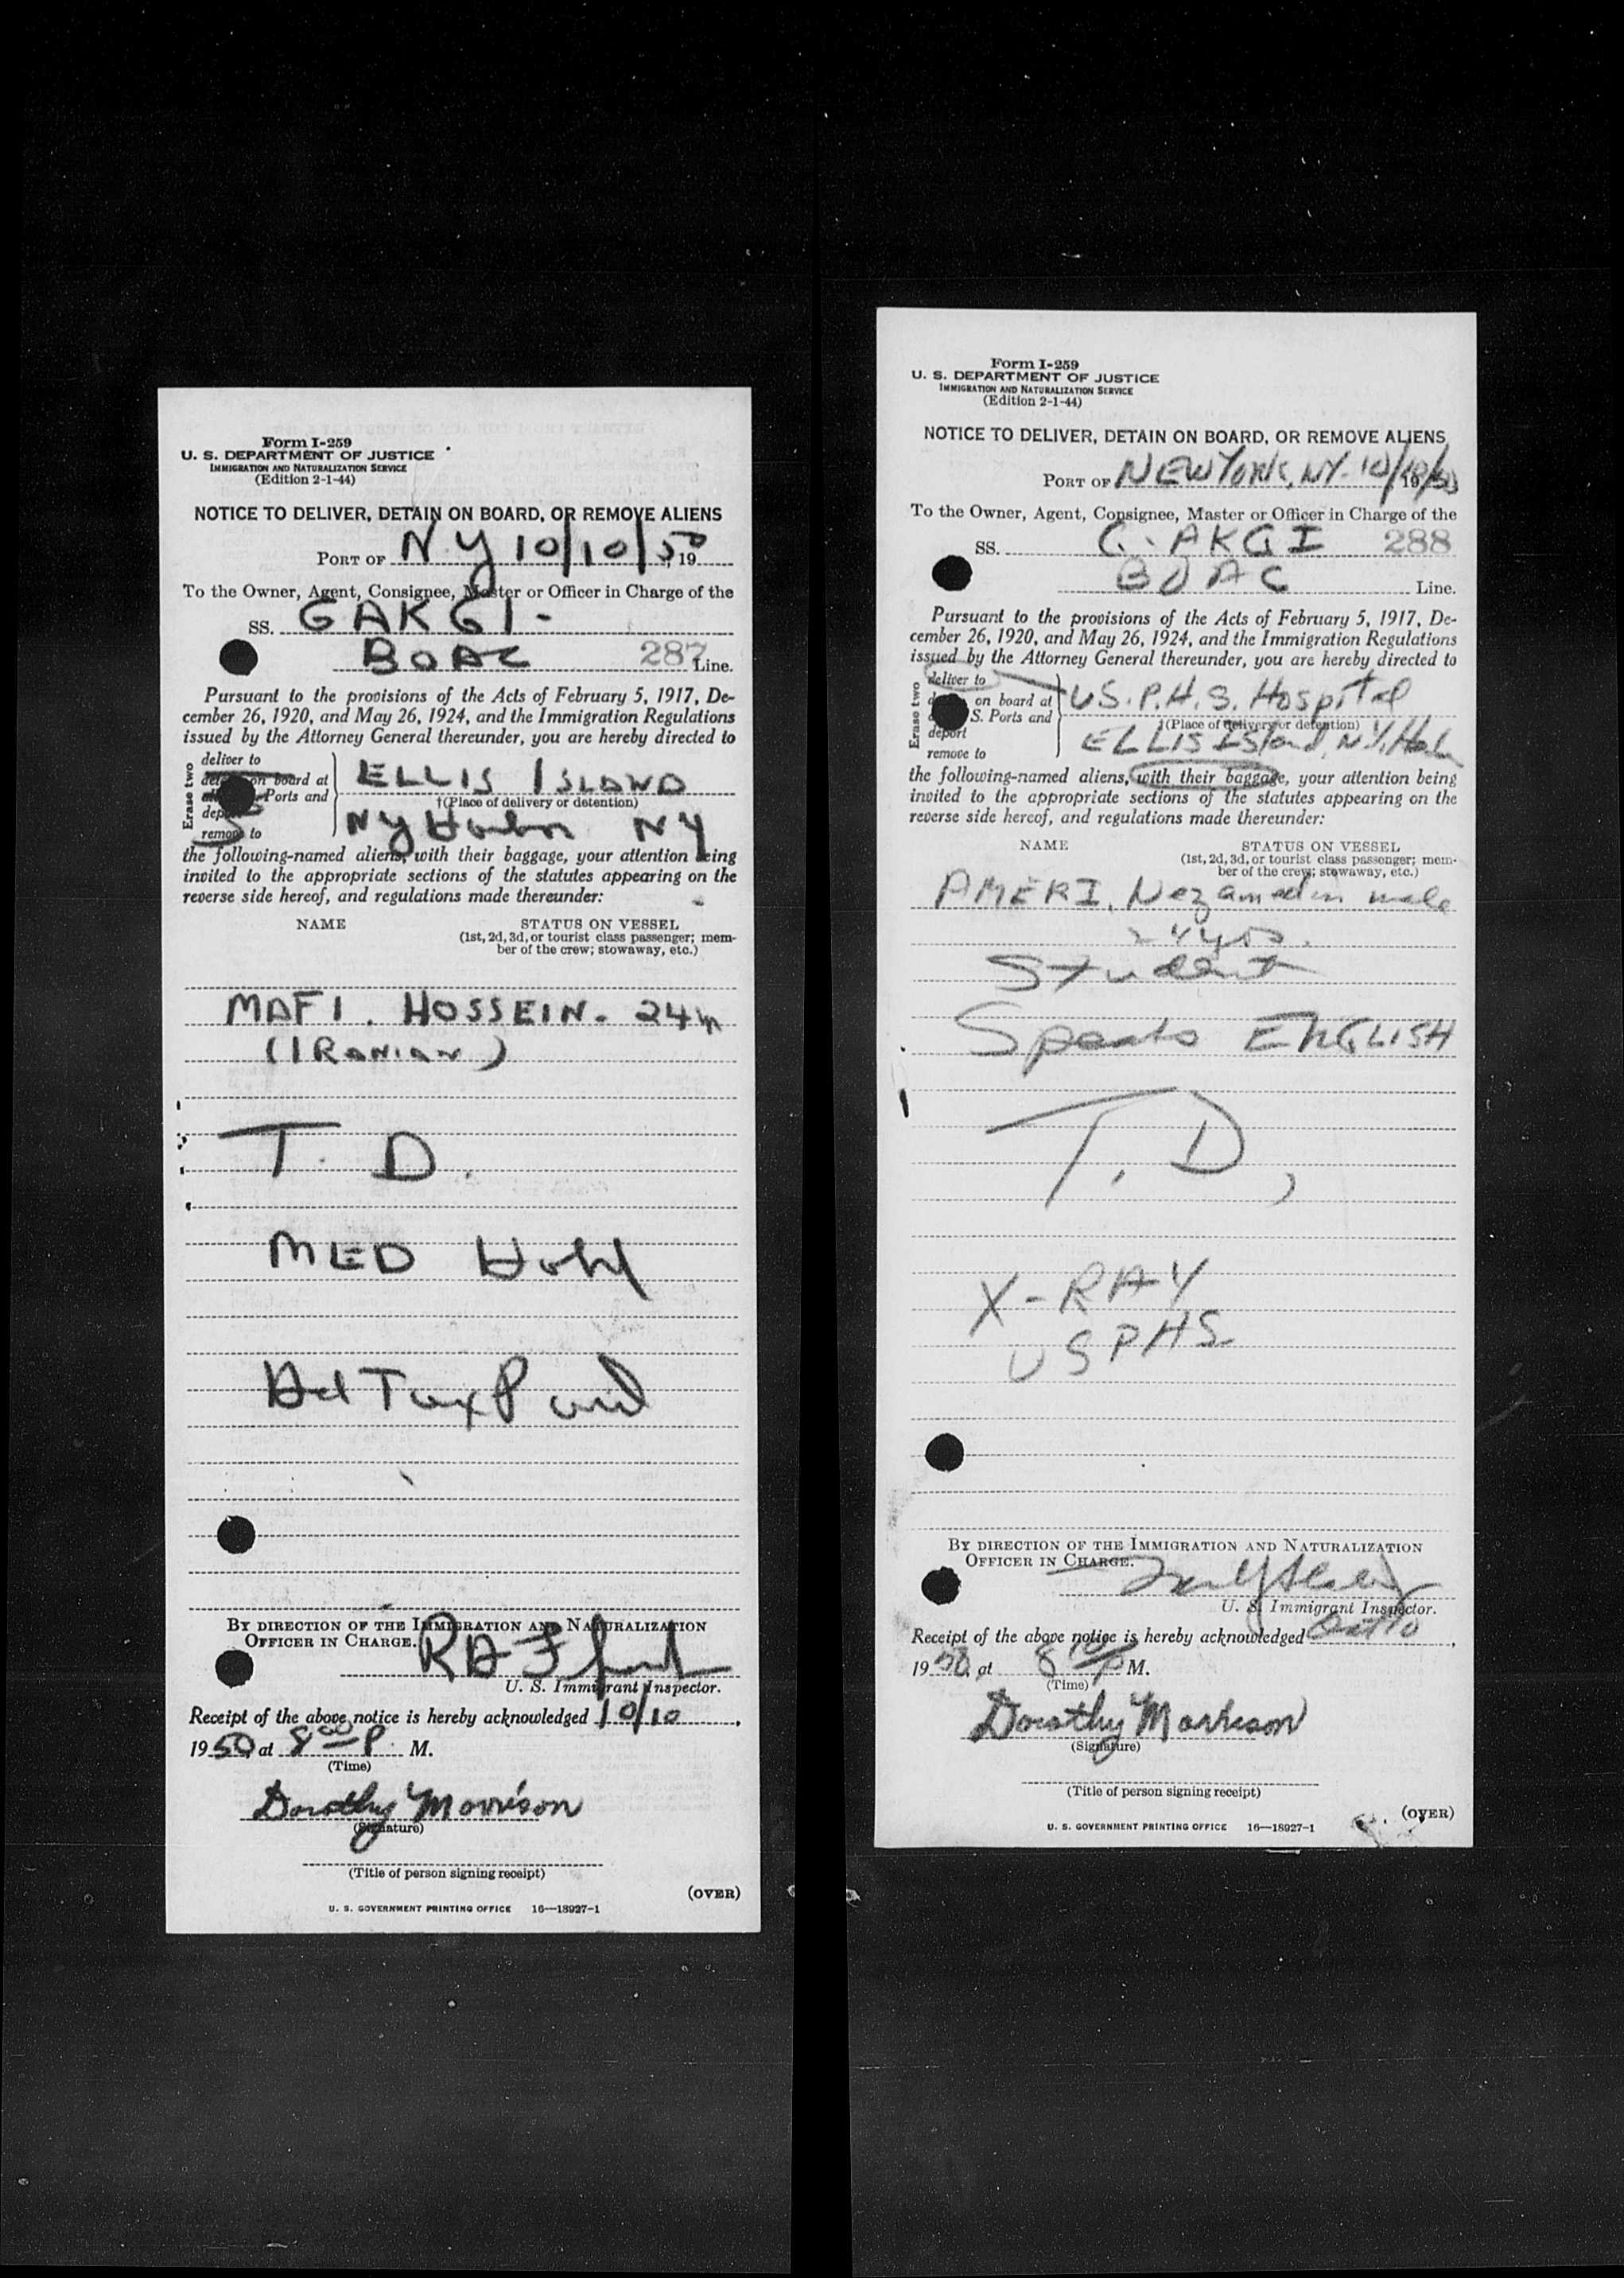 Form I-259
U. S. DEPARTMENT OF JUSTICE
IMMIGRATION AND NATURALIZATION SERVICE
(Edition 2-1-44)
NOTICE TO DELIVER, DETAIN ON BOARD, OR REMOVE ALIENS
PORT OF N.Y 10/10/50, 19
To the Owner, Agent, Consignee, Master or Officer in Charge of the
SS. GAKGI-
BOAC 287 Line.
Pursuant to the provisions of the Acts of February 5, 1917, De-
cember 26, 1920, and May 26, 1924, and the Immigration Regulations
issued by the Attorney General thereunder, you are hereby directed to
Erase two
deliver to
on board at
Ports and
remove to
ELLIS ISLAND
†(Place of delivery or detention)
NY NY
the following-named aliens, with their baggage, your attention being
invited to the appropriate sections of the statutes appearing on the
reverse side hereof, and regulations made thereunder:
NAME STATUS ON VESSEL
(1st, 2d, 3d, or tourist class passenger; mem-
ber of the crew; stowaway, etc.)
MAFI. HOSSEIN. 24
(IRANIAN)
T. D.
MED
Hd Tax Paid
BY DIRECTION OF THE IMMIGRATION AND NATURALIZATION
OFFICER IN CHARGE.
U. S. Immigrant Inspector.
Receipt of the above notice is hereby acknowledged 10/10,
1950, at 8 00 P. M.
(Time)
Dorothy Morrison
(Signature)
(Title of person signing receipt)
(OVER)
U. S. GOVERNMENT PRINTING OFFICE 16—18927-1
Form I-259
U. S. DEPARTMENT OF JUSTICE
IMMIGRATION AND NATURALIZATION SERVICE
(Edition 2-1-44)
NOTICE TO DELIVER, DETAIN ON BOARD, OR REMOVE ALIENS
PORT OF NEW YORK, NY. 10/10/50
To the Owner, Agent, Consignee, Master or Officer in Charge of the
SS. G-AKGI 288
BOAC Line.
Pursuant to the provisions of the Acts of February 5, 1917, De-
cember 26, 1920, and May 26, 1924, and the Immigration Regulations
issued by the Attorney General thereunder, you are hereby directed to
Erase two
deliver to
on board at
S. Ports and
deport
remove to
U.S.P.H.S. Hospital
†(Place of delivery or detention)
ELLIS Island, N.Y.
the following-named aliens, with their baggage, your attention being
invited to the appropriate sections of the statutes appearing on the
reverse side hereof, and regulations made thereunder:
NAME STATUS ON VESSEL
(1st, 2d, 3d, or tourist class passenger; mem-
ber of the crew; stowaway, etc.)
AMERI, Nezamedin male
24 yrs.
Student
Speaks ENGLISH
T. D,
X-RAY
USPHS
BY DIRECTION OF THE IMMIGRATION AND NATURALIZATION
OFFICER IN CHARGE.
U. S. Immigrant Inspector.
Receipt of the above notice is hereby acknowledged Oct 10,
1950, at 8 P M.
(Time)
Dorothy Morrison
(Signature)
(Title of person signing receipt)
(OVER)
U. S. GOVERNMENT PRINTING OFFICE 16—18927-1